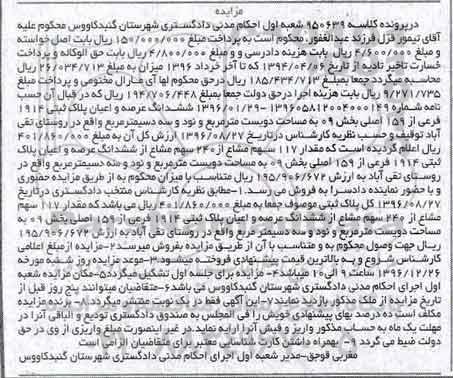 مزایده
درپرونده کلاسه ۹۵۰۶۳۹ شعبه اول احکام مدنی دادگستری شهرستان گنبدکاووس محکوم علیه
آقای تیمور قزل فرزند عبدالغفور محکوم است به پرداخت مبلغ ۱۵۰/۰۰۰/۰۰۰ ریال بابت اصل خواسته
و مبلغ ۴/۶۰۰/۰۰۰ ریال بابت هزینه دادرسی و و مبلغ ۴/۸۰۰/۰۰۰ ریال بابت حق الوکاله و پرداخت
خسارت تاخیر تادیه از تاریخ ۱۳۹۴/۰۴/۰۶ که تا آخر خرداد ۱۳۹۶ میزان به مبلغ ۲۶/۰۳۴/۷۱۳ ریال
محاسبه میگردد جمعا بمبلغ ۱۸۵/۴۳۴/۷۱۳ ریال درحق محکوم لها آی مارال مختومی و پرداخت مبلغ
۹/۲۷۱/۷۳۵ ریال بابت هزینه اجرا درحق دولت جمعا بمبلغ ۱۹۴/۷۰۶/۴۴۸ ریال که در قبال آن حسب
نامه شماره ۱۳۹۶۰۵۸۱۲۰۰۴۰۰۰۱۴۹ -۱۳۹۶/۰۱/۲۹ ششدانگ عرصه و اعیان پلاک ثبتی ۱۹۱۴
فرعی از ۱۵۹ اصلی بخش ۰۹ به مساحت دویست مترمربع و نود و سه دسیمترمربع واقع در روستای تقی
آباد توقیف و حسب نظریه کارشناس درتاریخ ۱۳۹۶/۰۸/۲۷ ارزش کل آن به مبلغ ۴۰۱/۸۶۰/۰۰۰
ریال اعلام گردیده است که مقدار ۱۱۷ سهم مشاع از ۲۴۰ سهم مشاع از ششدانگ عرصه و اعیان پلاک
ثبتی ۱۹۱۴ فرعی از ۱۵۹ اصلی بخش ۰۹ به مساحت دویست مترمربع و نود و سه دسیمترمربع واقع در
روستای تقی آباد به ارزش ۱۹۵/۹۰۶/۶۷۲ ریال متناسب با میزان محکوم به از طریق مزایده حضوری
و با حضور نماینده دادسرا به فروش می رسد.۱-مطابق نظریه کارشناس منتخب دادگستری درتاریخ
۱۳۹۶/۰۸/۲۷ کل پلاک ثبتی موصوف جمعا به مبلغ ۴۰۱/۸۶۰/۰۰۰ ریال می باشد که مقدار ۱۱۷ سهم
مشاع از ۲۴۰ سهم مشاع از ششدانگ عرصه و اعیان پلاک ثبتی ۱۹۱۴ فرعی از ۱۵۹ اصلی بخش ۰۹ به
مساحت دویست مترمربع و نود و سه دسیمتر مربع واقع در روستای تقی آباد به ارزش ۱۹۵/۹۰۶/۶۷۲
ریال جهت وصول محکوم به و متناسب با آن از طریق مزایده بفروش میرسد۲-مزایده ازمبلغ اعلامی
کارشناس شروع و به بالاترین قیمت پیشنهادی فروخته میشود.۳-موعد مزایده روز شنبه مورخه
۱۳۹۶/۱۲/۲۶ ساعت ۹ الی ۱۰ میباشد۴- مزایده برای جلسه اول تشکیل میگردد۵-مکان مزایده شعبه
اول اجرای احکام مدنی دادگستری شهرستان گنبدکاووس می باشد۶-متقاضیان میتوانند پنج روز قبل از
تاریخ مزایده از ملک مذکور بازدید نمایند۷-این آگهی فقط در یک نوبت منتشر میگردد.۸- برنده مزایده
مکلف است ده درصد بهای پیشنهادی خویش را فی المجلس به صندوق دادگستری تودیع و الباقی آنرا در
مهلت یک ماه به حساب مذکور واریز و فیش آنرا ارایه نماید.در غیر اینصورت مبلغ واریزی از وی در حق
دولت ضبط می گردد ۹- بهمراه داشتن کارت شناسایی معتبر برای متقاضیان الزامی است
مقربی قوجق-مدیر شعبه اول اجرای احکام مدنی دادگستری شهرستان گنبدکاووس